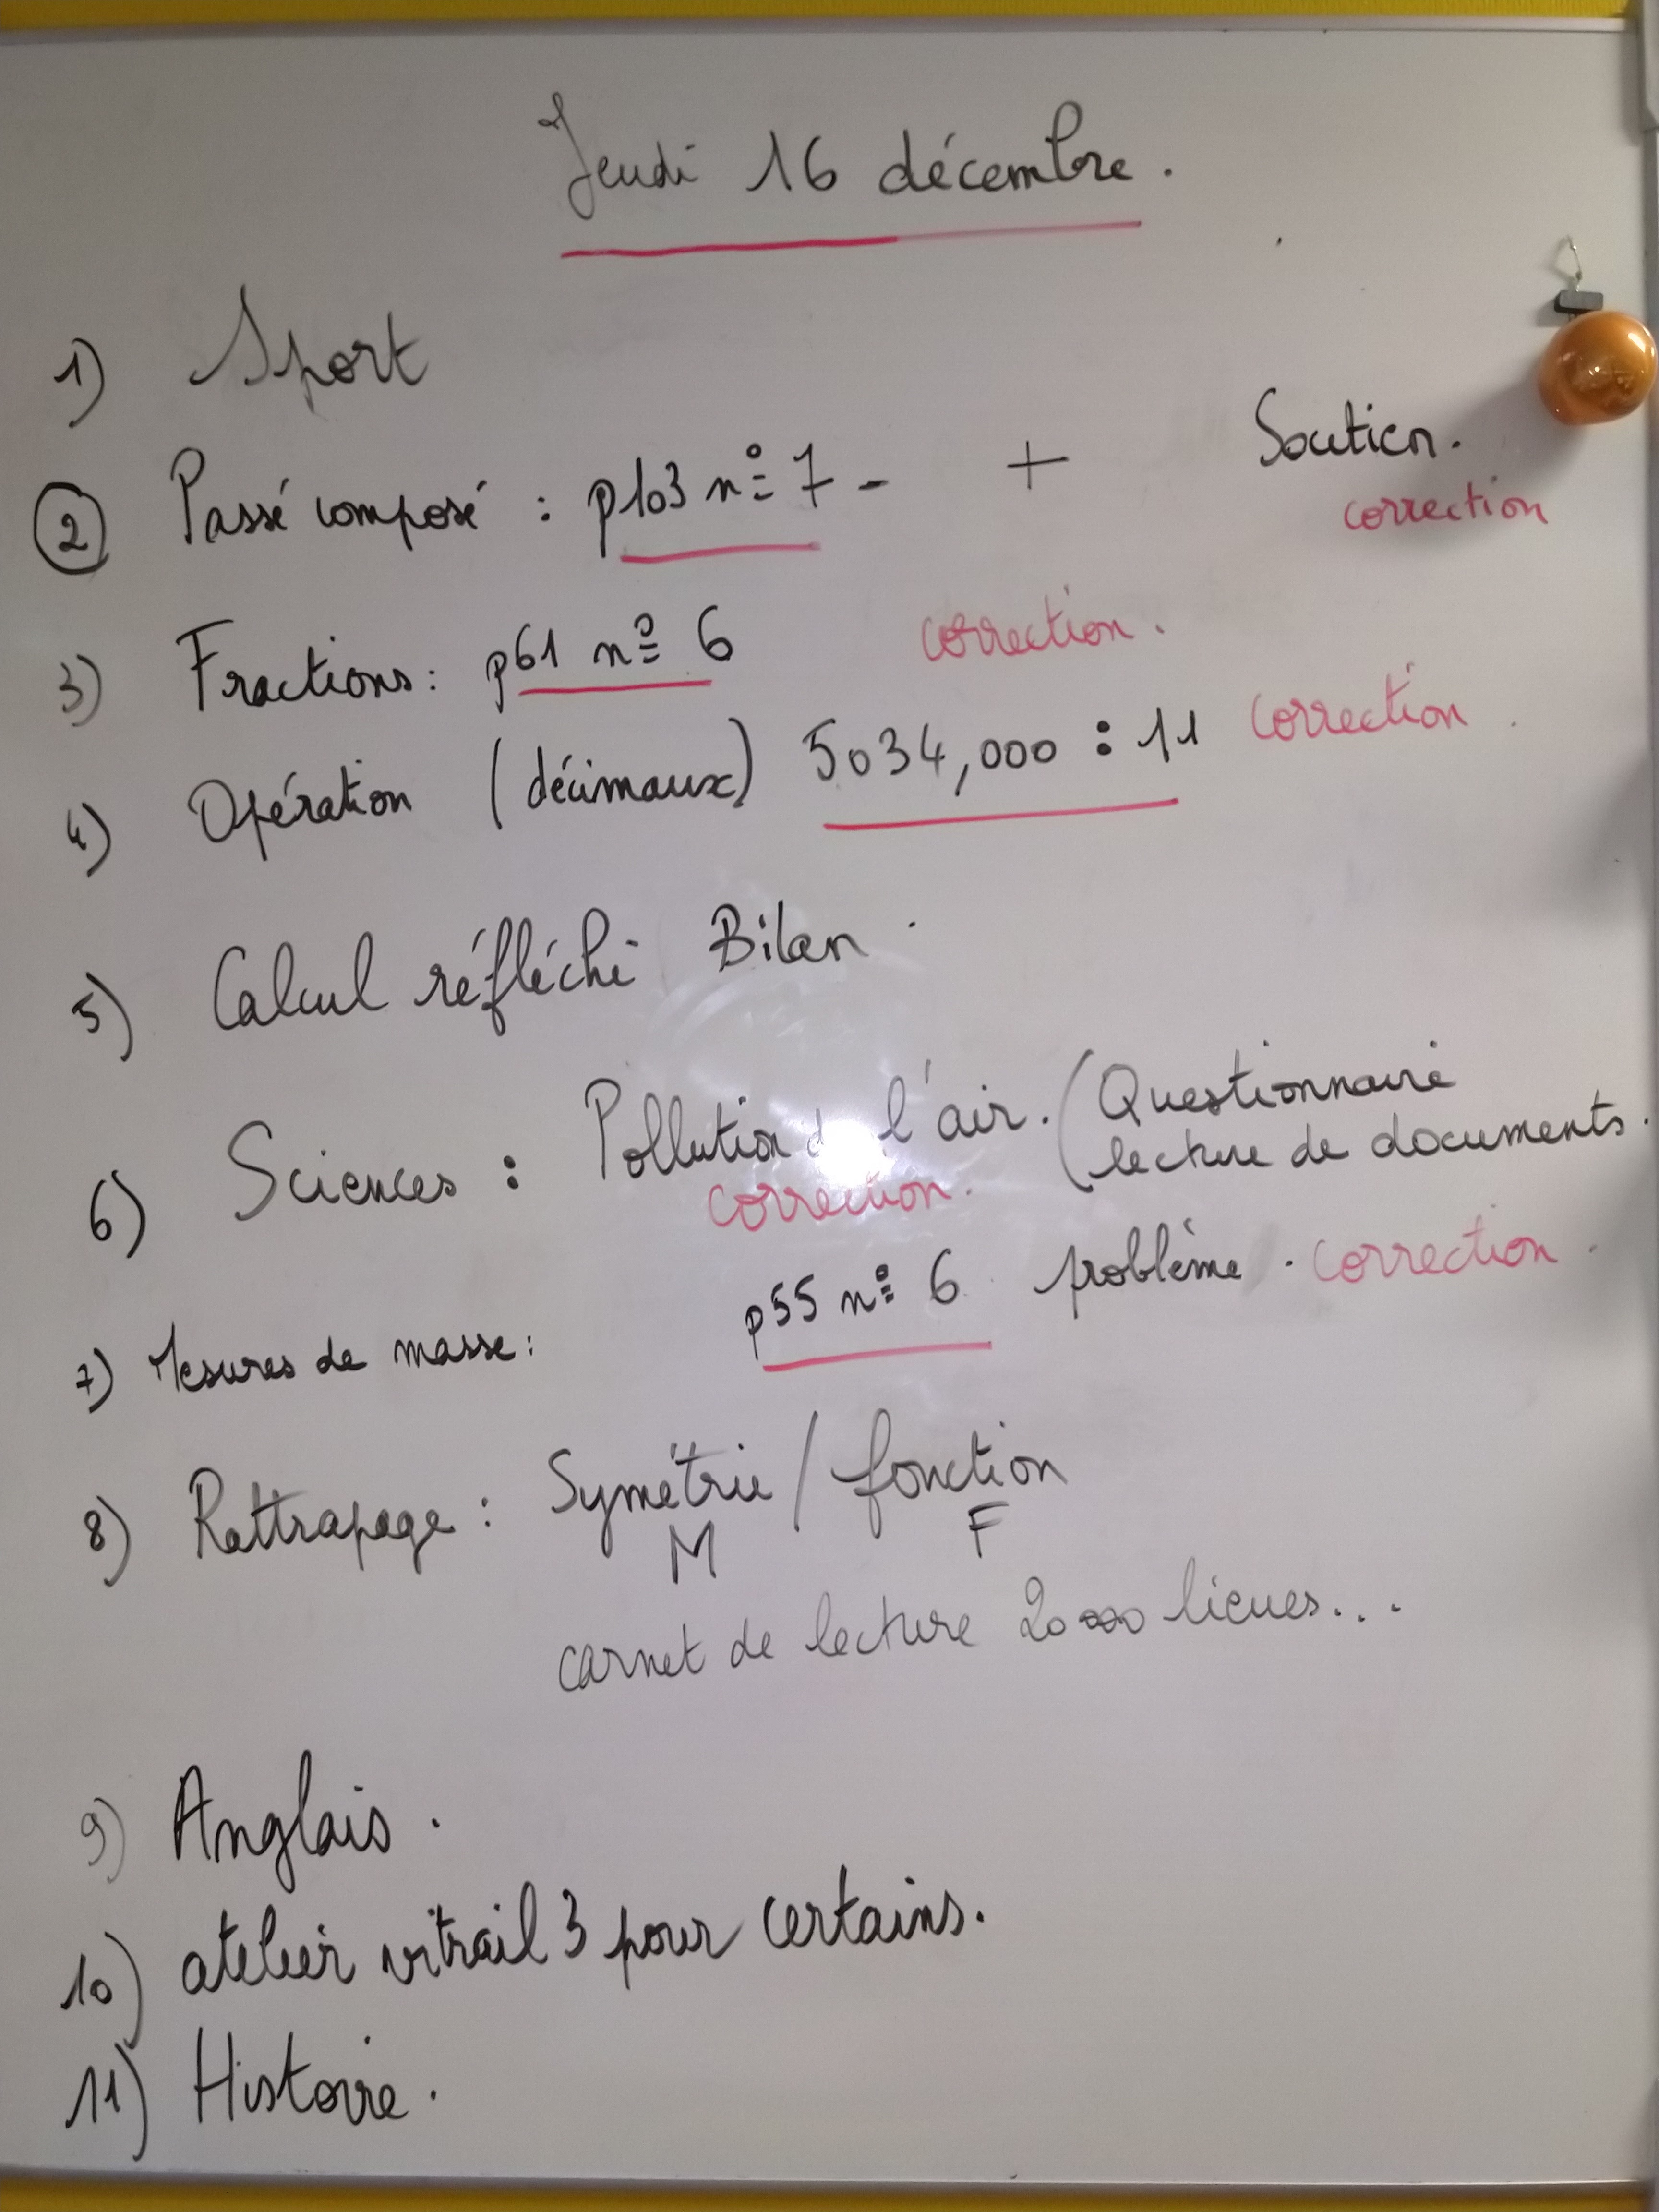 Jeudi 16 décembre.
1) Sport
2 Passé composé : p103 n° 7 - + Soutien.
correction
3) Fractions : p61 n° 6 correction.
4) Opération (décimaux) 5034,000 : 11 correction.
5) Calcul réfléchi Bilan.
6) Sciences : Pollution l'air. (Questionnaire
lecture de documents.
correction.
7) Mesures de masse : p55 n° 6 problème. correction.
8) Rattrapage : Symétrie / fonction
M F
carnet de lecture 20000 lieues...
9) Anglais.
10) atelier vitrail 3 pour certains.
11) Histoire.